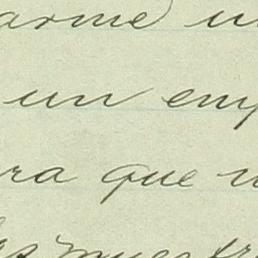 arme u
un emp
ra que u
es muestr